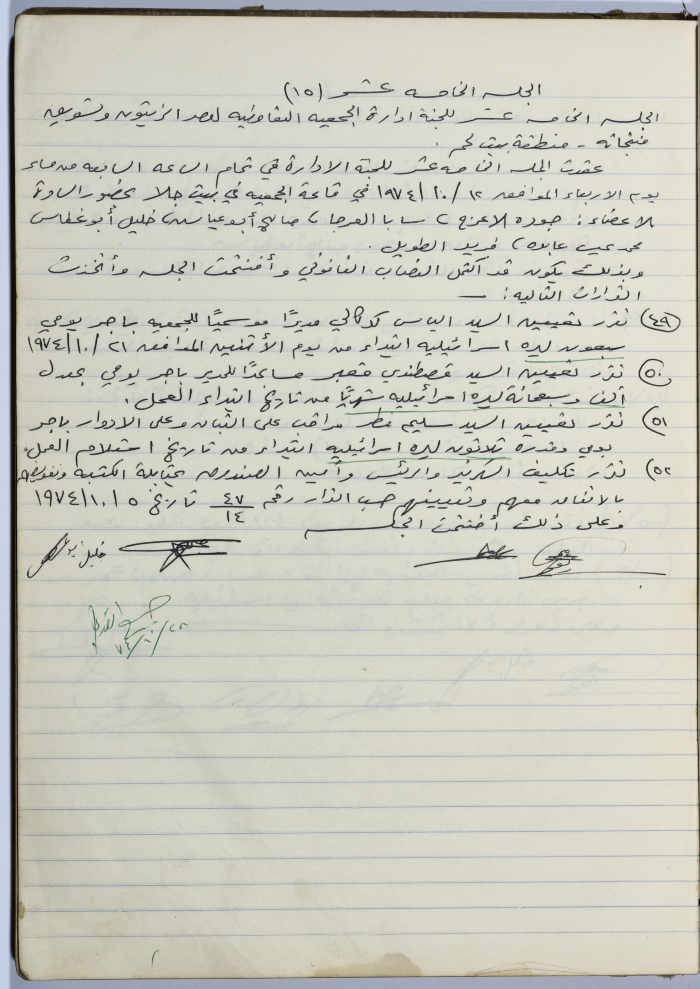 الجلسه الخامسه عشر (١٥)
الجلسه الخامسه عشر للجنة ادارة الجمعيه التعاونيه لعصر الزيتون وتسويق
منتجاته - منطقة بيت لحم .
عقدت الجلسه الخامسه عشر للجنة الادارة في تمام الساعه السابعه من مساء
يوم الاربعاء الموافقه ١٢ /١٠/ ١٩٧٤ في قاعة الجمعيه في بيت جالا بحضور السادة
الاعضاء : جوده الاعرج ، سابا العرجا ، صالح أبو عياش ، خليل أبو غطاس
محمد عيسى عابده ، فريد الطويل .
وبذلك يكون قد اكتمل النصاب القانوني وأفتتحت الجلسه وأتخذت
القرارات التاليه : —
(٤٩) نقرر تعيين السيد الياس مديرًا موسميًا للجمعيه باجر يومي
سبعون ليره اسرائيليه ابتداء من يوم الأثنين الموافقه ٢١ /١٠/ ١٩٧٤
(٥٠ نقرر تعيين السيد قسطندي مساعدًا للمدير باجر يومي بمعدل
ألف وسبعمائة ليره اسرائيليه شهريًا من تاريخ ابتداء العمل .
(٥١ نقرر تعيين السيد سليم مطر مراقب على القبان وعلى الادوار باجر
يومي وقدره ثلاثون ليره اسرائيليه ابتداء من تاريخ استلام العمل .
(٥٢ نقرر تكليف السكرتير والرئيس وأمين الصندوق بمقابلة الكتبة
بالاتفاق معهم وتعيينهم حسب القرار رقم ٤٧/١٤ تاريخ ٥ /١٠/ ١٩٧٤
وعلى ذلك أختتمت الجلسه